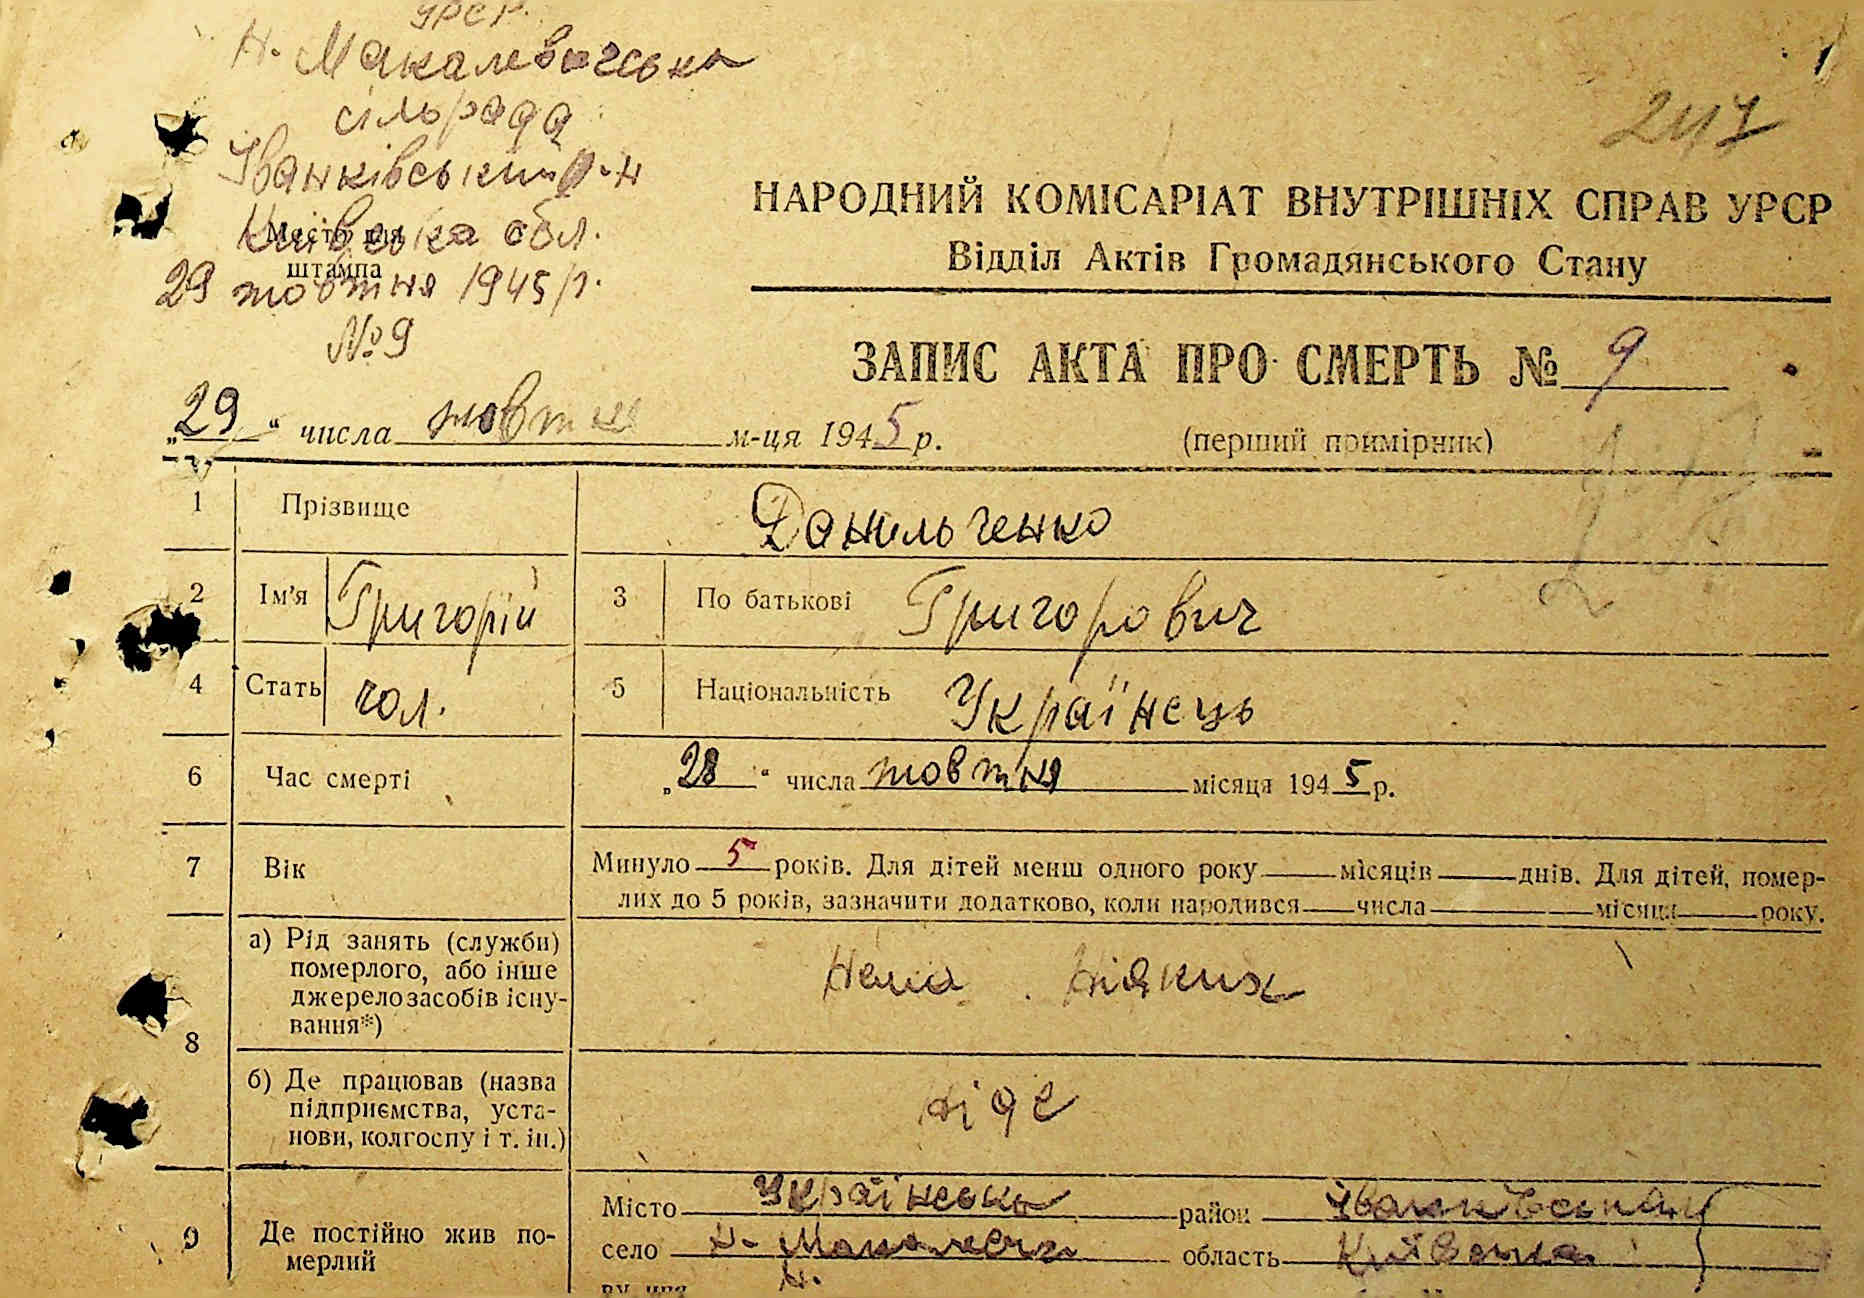 УРСР.
Н. Макалевичська
сільрада
Іванківський р-н
Київська обл.
Місто для
штампа
29 жовтня 1945 р.
№ 9
247
НАРОДНИЙ КОМІСАРІАТ ВНУТРІШНІХ СПРАВ УРСР
Відділ Актів Громадянського Стану
ЗАПИС АКТА ПРО СМЕРТЬ № 9
„29“ числа жовтня м-ця 1945 р. (перший примірник)
1 Прізвище Данильченко
2 Ім'я Григорій 3 По батькові Григорович
4 Стать чол. 5 Національність Українець
6 Час смерті „28“ числа жовтня місяця 1945 р.
7 Вік Минуло 5 років. Для дітей менш одного року ___ місяців ___ днів. Для дітей, помер-
лих до 5 років, зазначити додатково, коли народився ___ числа ___ місяця ___ року.
8 а) Рід занять (служби)
померлого, або інше
джерело засобів існу-
вання*) Нема ніяких
б) Де працював (назва
підприємства, уста-
нови, колгоспу і т. ін.) ніде
9 Де постійно жив по-
мерлий
Місто Українська район Іванківський
село Н-Макалевичі область Київська
Н.